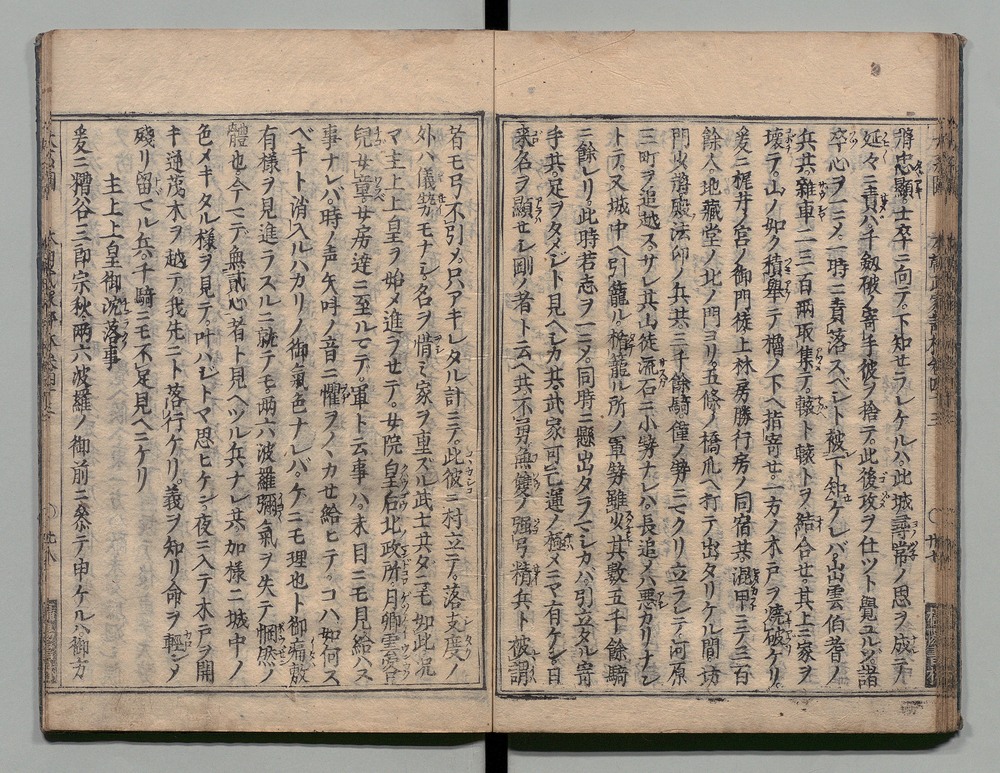 将忠顯士卒ニ向テ下知セラレケルハ此城尋常ノ思ヲ成テ
延々ニ責ハ千劔破ノ寄手彼ヲ捨テ此後攻ヲ仕ツト覺ユルソ諸
卒心ヲ一ニメ一時ニ責落スベシト被下知ケレバ出雲伯耆ノ
兵共雜車二三百兩取集テ轅ト轅トヲ結合セ其上ニ家ヲ
壊テ山ノ如ク積舉テ櫓ノ下ヘ指寄セ一方ノ木戸ヲ燒破ケリ
爰ニ梶井ノ宮ノ御門徒上林房勝行房ノ同宿共混甲ニテ三百
餘人地藏堂ノ北ノ門ヨリ五條ノ橋爪ヘ打テ出タリケル間坊
門少將殿法印ノ兵共三千餘騎僅ノ勢ニマクリ立ラレテ河原
三町ヲ追越サルサレ共山徒流石ニ小勢ナレハ長追メハ悪カリナン
トテ又城中ヘ引籠ル楯籠ル所ノ軍勢雖少其數五千餘騎
ニ餘レリ此時若志ヲ一ニメ同時ニ懸出タラマシカハ引立タル寄
手共足ヲタメジト見ヘシカ共武家可亡運ノ極メニヤ有ケン日
來名ヲ顯セシ剛ノ者ト云ヘ共不勇無雙ノ强弓精兵ト被謂
者モ弓ヲ不引メ只アキレタル計ニテ此彼ニ村立テ落支度ノ
外ハ儀勢モナシ名ヲ惜ミ家ヲ重ズル武士共タニモ如此况
ヤ主上上皇ヲ始メ進ラセテ女院皇后北政所月卿雲客
兒女童女房達ニ至ルマデ軍ト云事ハ未目ニモ見給ハヌ
事ナレバ時ノ声矢叫ノ音ニ懼ヲノヽカセ給ヒテコハ如何ス
ベキト消入ルハカリノ御氣色ナレバケニモ理也ト御痛敷
有様ヲ見進ラスルニ就テモ兩六波羅彌氣ヲ失テ惘然ノ
體也今マテ無貳心者ト見ヘツル兵ナレ共加樣ニ城中ノ
色メキタル樣ヲ見テ叶ハシトヤ思ヒケン夜ニ入テ木戸ヲ開
キ逆茂木ヲ越テ我先ニト落行ケリ義ヲ知リ命ヲ輕シメ
殘リ留マル兵千騎ニモ不足見ヘニケリ
主上上皇御沈落事
爰ニ糟谷三郎宗秋兩六波羅ノ御前ニ參テ申ケルハ御方